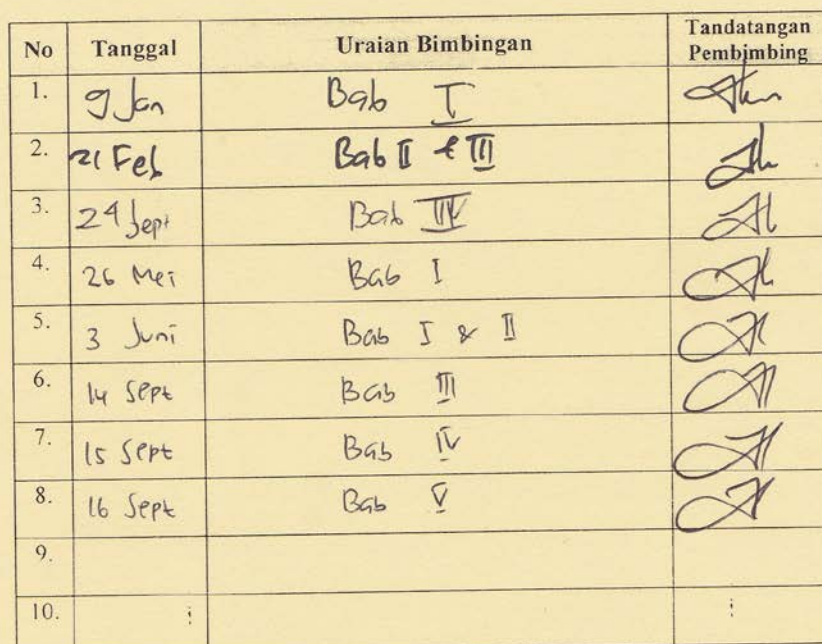 No Tanggal Uraian Bimbingan Tandatangan Pembimbing
1. 9 Jan Bab I
2. 21 Feb Bab II & III
3. 24 Sept Bab IV
4. 26 Mei Bab I
5. 3 Juni Bab I & II
6. 14 Sept Bab III
7. 15 Sept Bab IV
8. 16 Sept Bab V
9.
10.